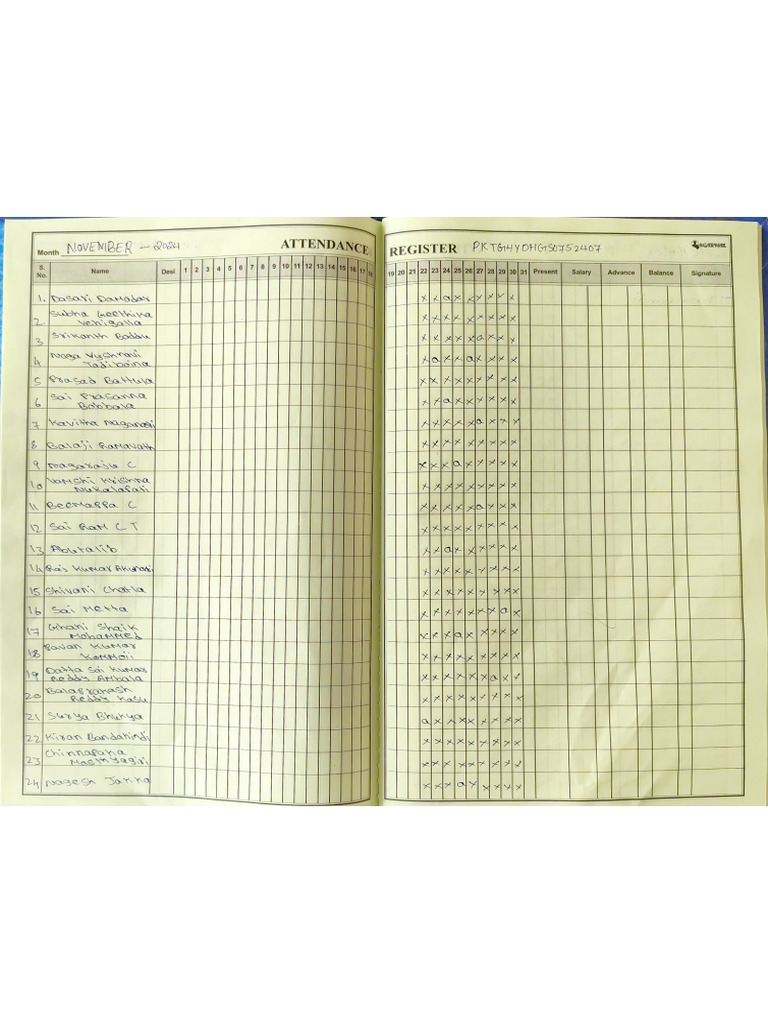 Month NOVEMBER - 2024 ATTENDANCE REGISTER PKTG14YDHGS0752407
S. No. Name Desi 1 2 3 4 5 6 7 8 9 10 11 12 13 14 15 16 17 18 19 20 21 22 23 24 25 26 27 28 29 30 31 Present Salary Advance Balance Signature
1. Dasari Damodar x x a x x x x x x
2. Subha Geethika x x x x x x x x x
Vehigalla
3 Srikanth Boddu x x x x x a x x x
4 Naga Vyshnavi x a x x a x x x x
Tadiboina
5 Prasad Battula x x x x x x x x x
6 Sai Prasanna x x a x x x x x x
Bobbala
7 Kavitha x x x x x a x x x
8 Balaji Ramavath x x x x x x x x x
9 Nagaraju C x x x a x x x x x
10 Vamshi Krishna x x x x x x x x x
Nukalapati
11 Beemappa C x x x x x a x x x
12 Sai Ram C T x x x x x x x x x
13 Abutalib x x a x x x x x x
14 Raj Kumar x x x x x x x x x
15 Shivani Chatla x x x x x x x x x
16 Sai Metta x x x x x x x a x
17 Ghani Shaik x x x a x x x x x
Mohammed
18 Pavan Kumar x x x x x x x x x
Kommoji
19 Datta Sai Kumar x x x x x x a x x
Reddy Ambala
20 Balaprakash x x x x x x x x x
Reddy Kasu
21 Surya Bhukya a x x x x x x x x
22 Kiran Bandakindi x x x x x x x x x
23 Chinnapaka x x x x x x x x x
Masthyagiri
24 Nagesh Janna x x x a x x x x x